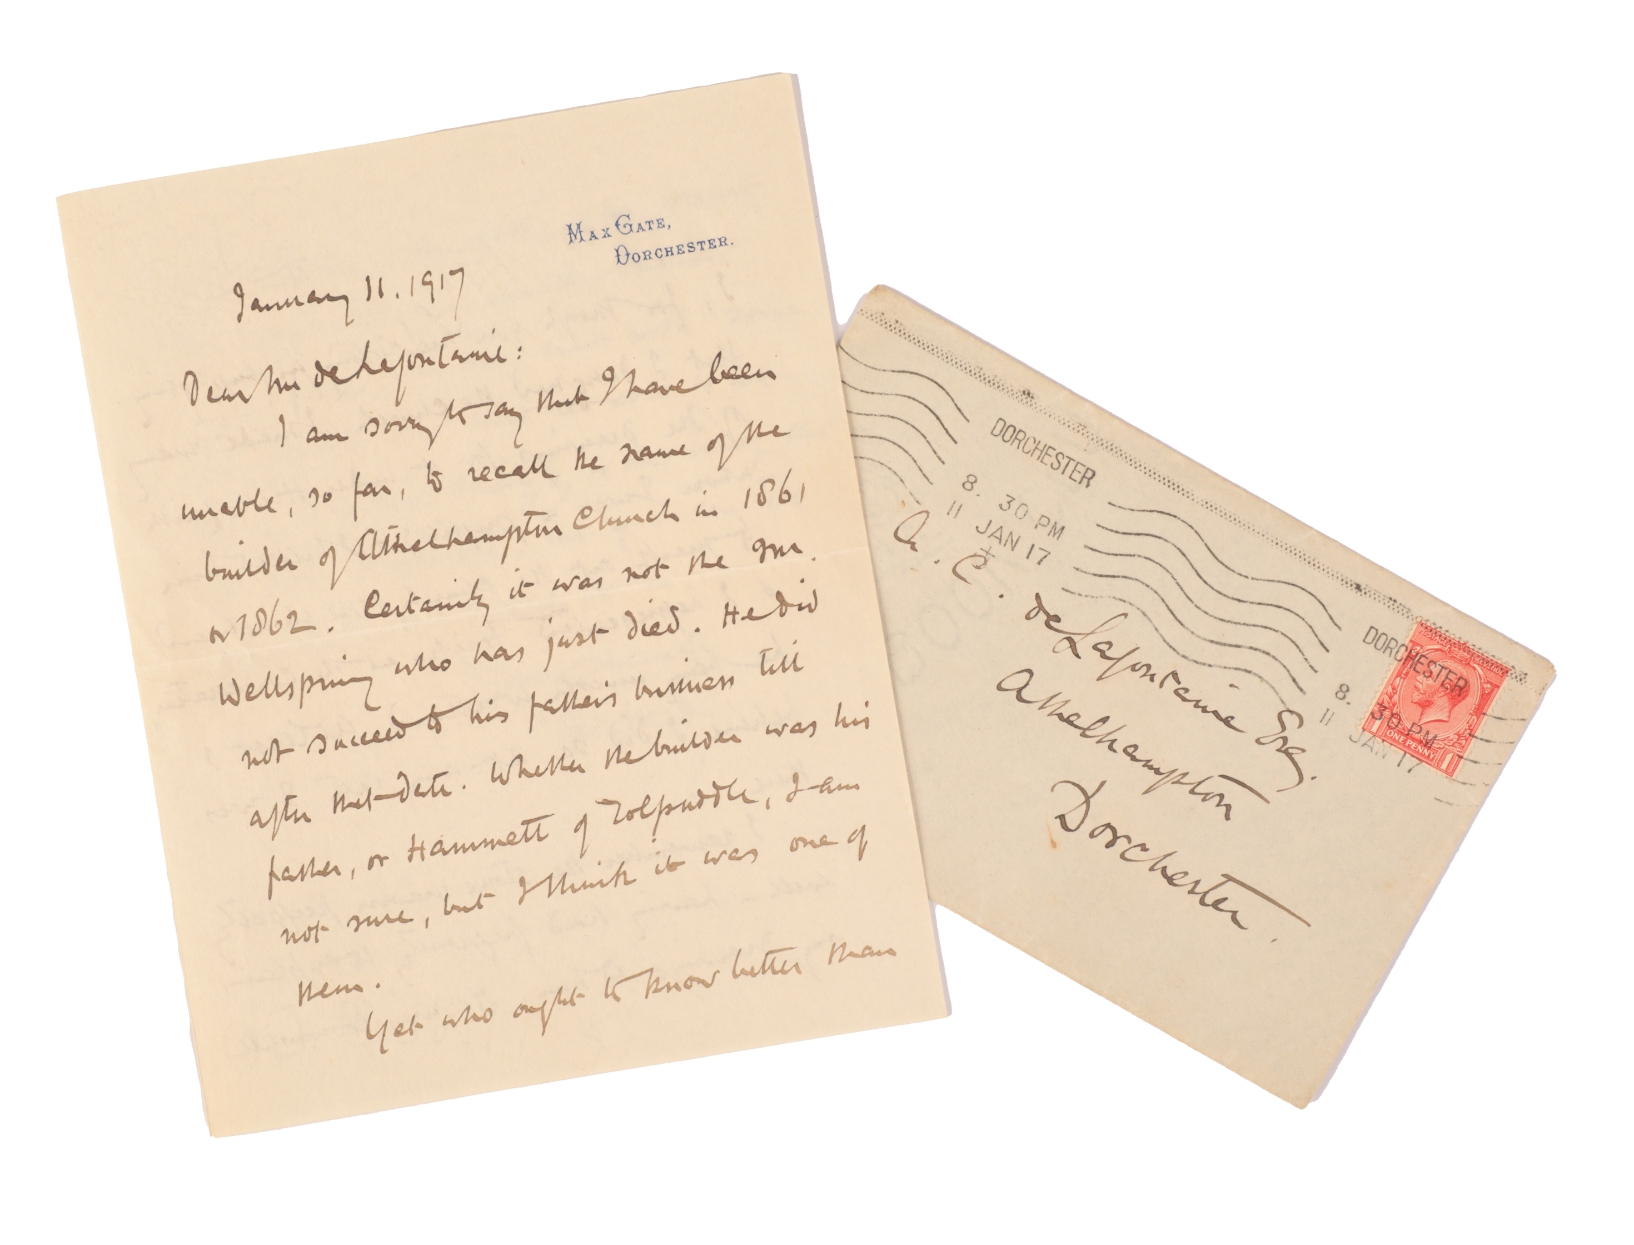 MAX GATE,
DORCHESTER.
January 11. 1917
Dear Mr de Lafontaine:
I am sorry to say that I have been
unable, so far, to recall the name of the
builder of Athelhampton Church in 1861
or 1862. Certainly it was not the Mr.
Wellspring who has just died. He did
not succeed to his father's business till
after that date. Whether the builder was his
father, or Hammett of Tolpuddle, I am
not sure, but I think it was one of
them.
Yet who ought to know better than
DORCHESTER
8. 30 PM
11 JAN 17
DORCHESTER
8. 30 PM
11 JAN 17
ONE PENNY
A. C. de Lafontaine Esq.
Athelhampton
Dorchester.